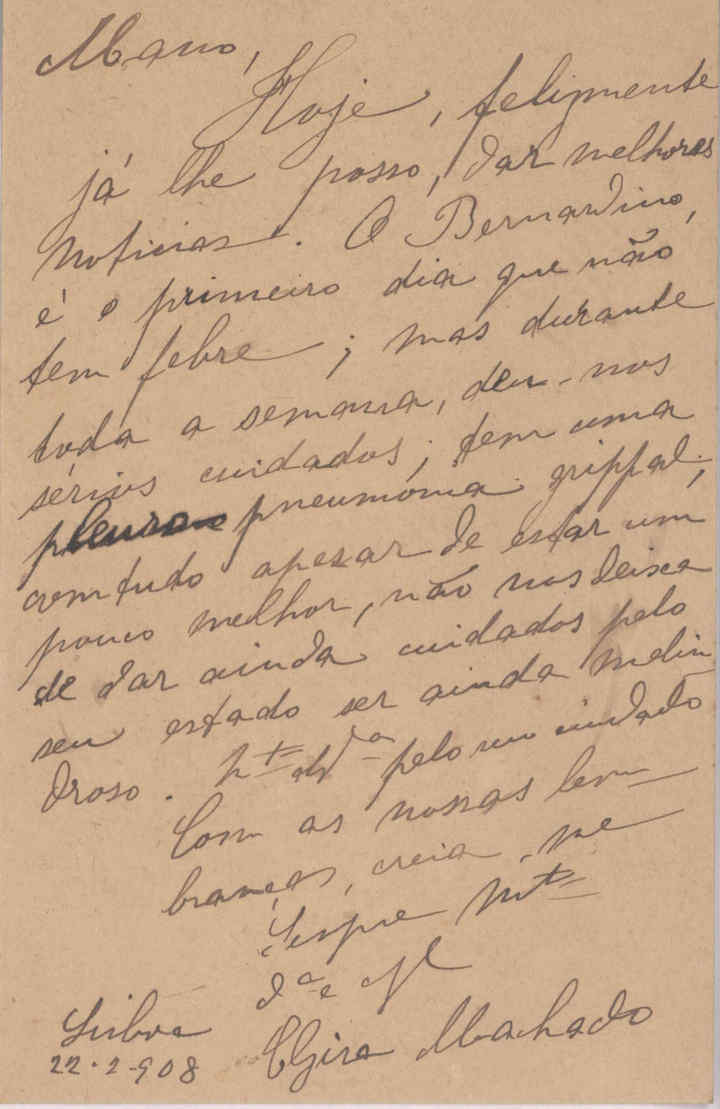 Mano,
Hoje, felizmente
já lhe posso, dar melhores
noticias. O Bernardino,
é o primeiro dia que não
tem febre; mas durante
toda a semana, deu-nos
sérios cuidados; tem uma
pleuro pneumónia grippal;
comtudo apezar de estar um
pouco melhor, não nos deixa
de dar ainda cuidados pelo
seu estado ser ainda melin
droso. pelo seu cuidado
Com as nossas lem
branças, creia-me
Sempre mto
da e
Lisboa
22-2-908 Elzira Machado